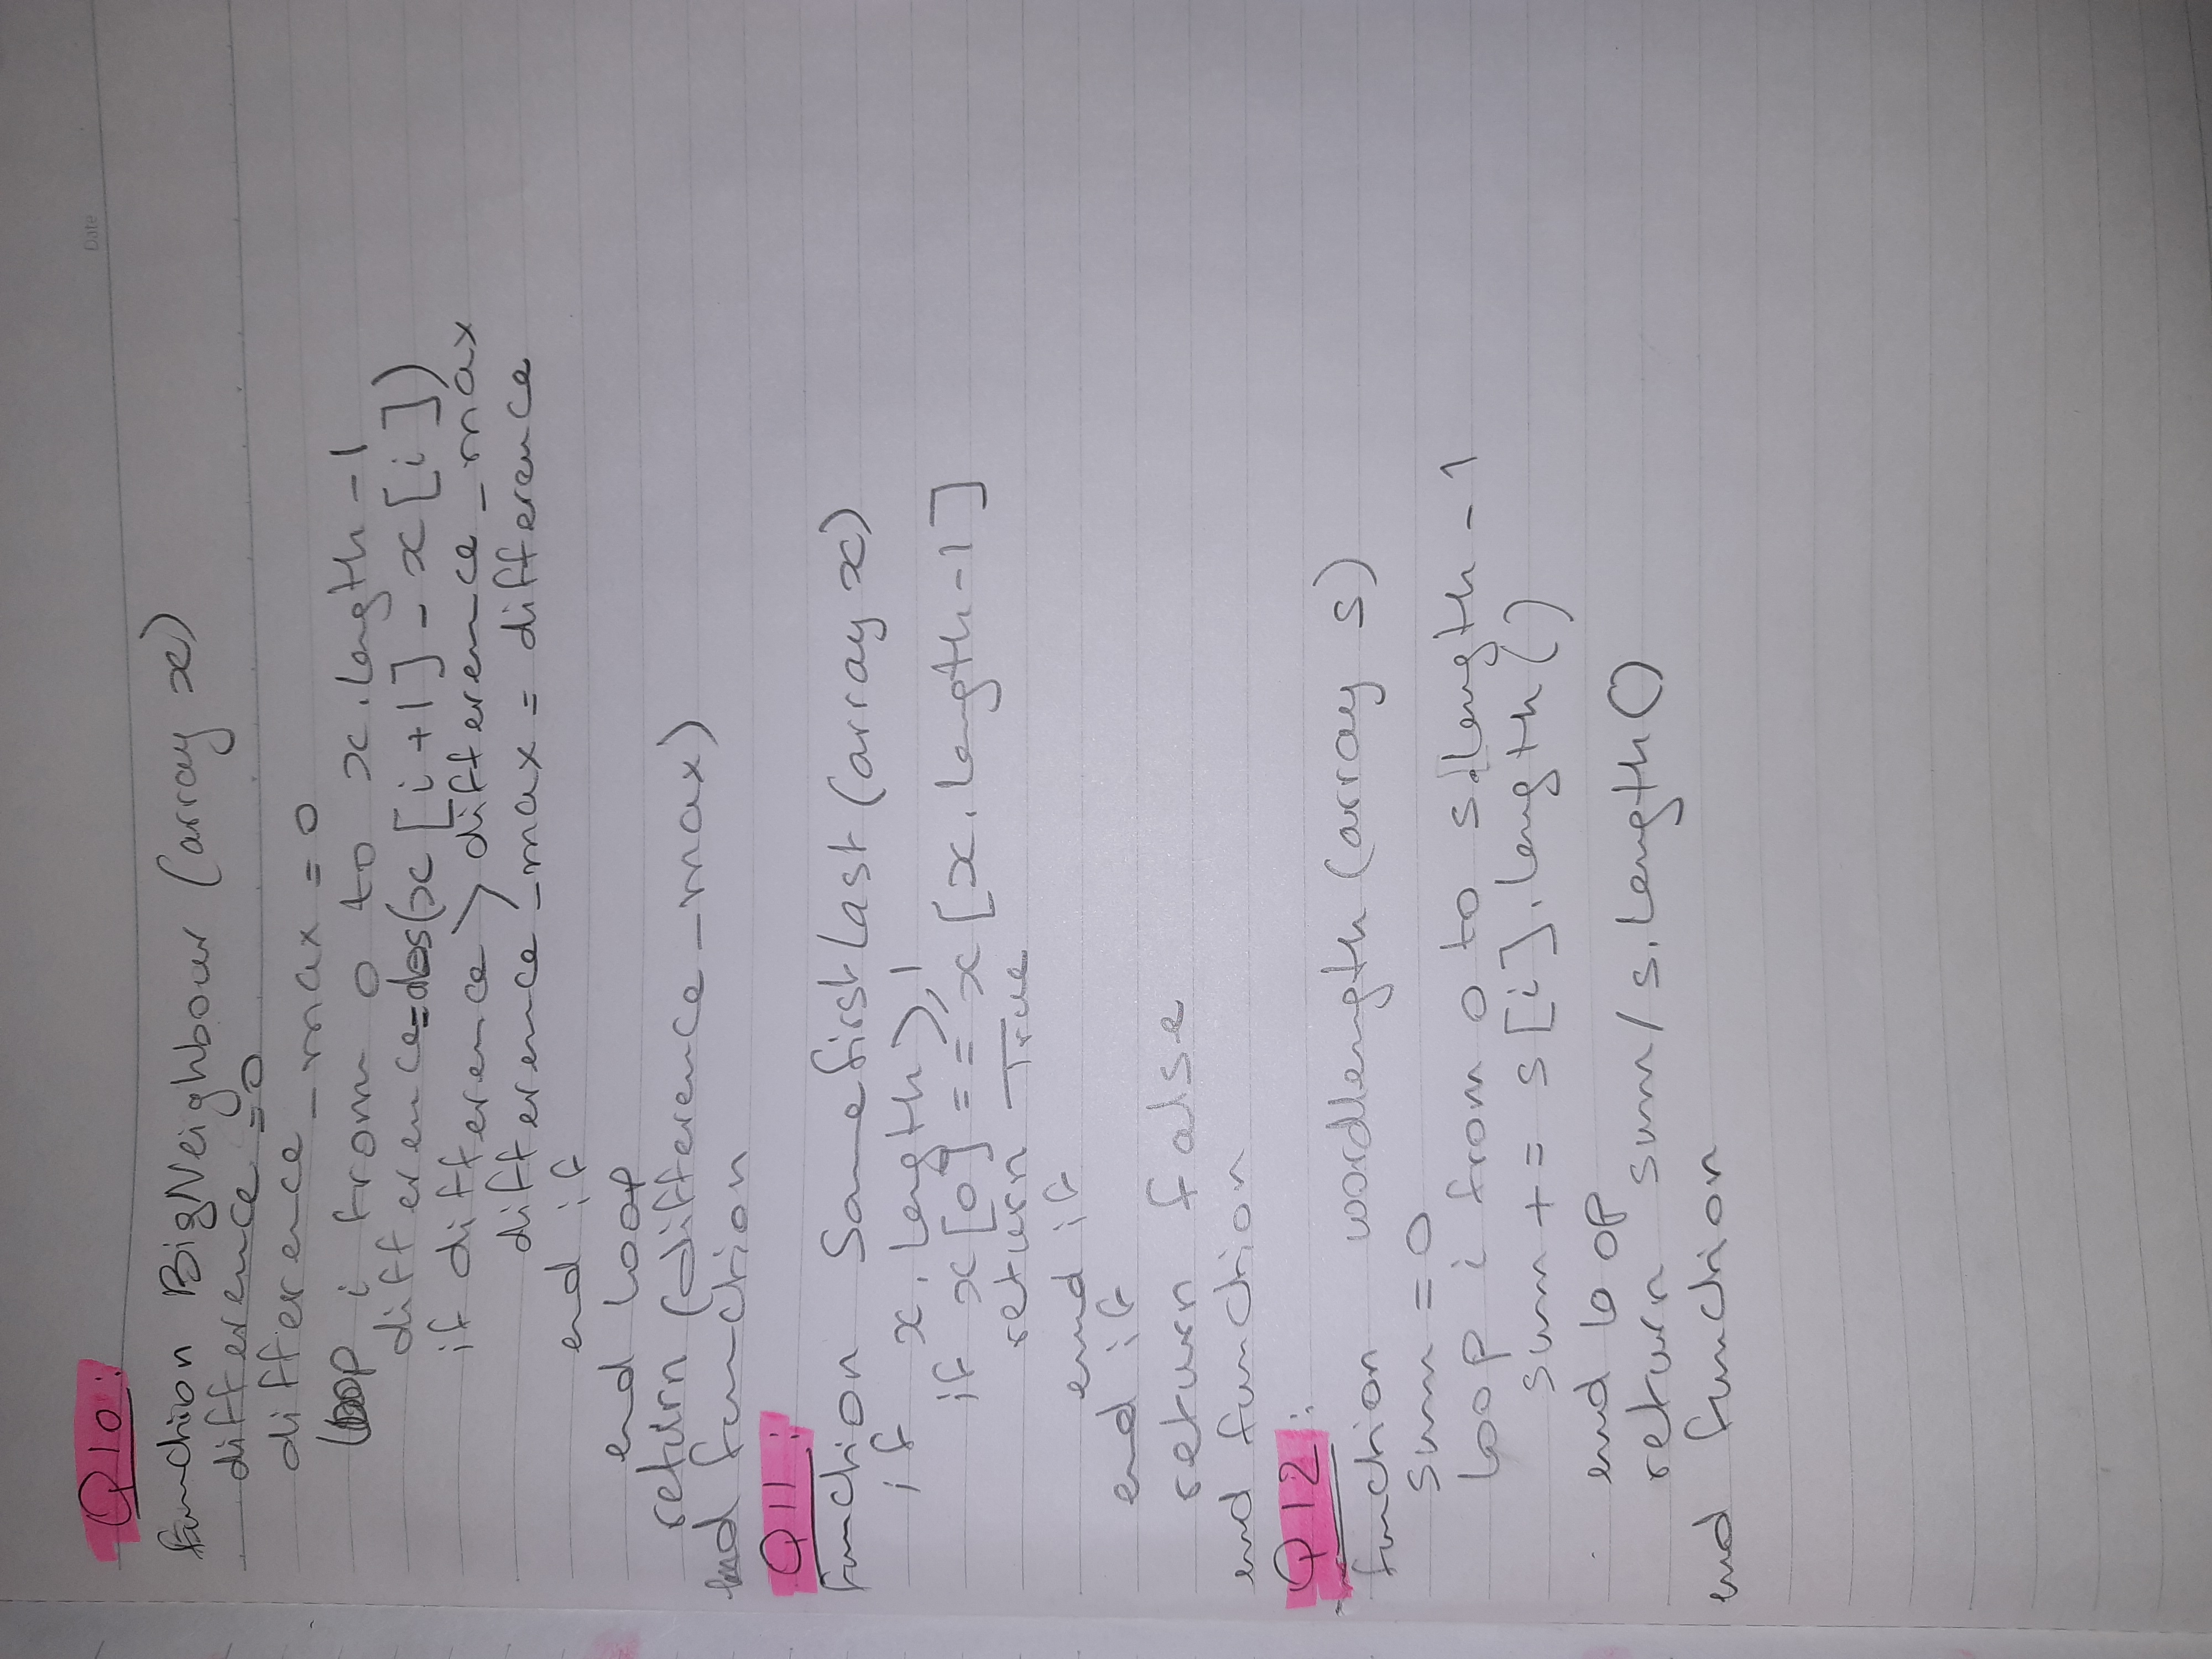 Date
Q10:
function BigNeighbour (array x)
difference = 0
difference_max = 0
loop i from 0 to x.length-1
difference=abs(x[i+1] - x[i])
if difference > difference_max
difference_max = difference
end if
end loop
return (difference_max)
end function
Q11:
function Samefirstlast (array x)
if x.length ⩾ 1
if x[0] == x[x.length-1]
return True
end if
end if
return false
end function
Q12:
function wordlength (array s)
sum = 0
loop i from 0 to s.length - 1
sum += s[i].length()
end loop
return sum/s.length()
end function